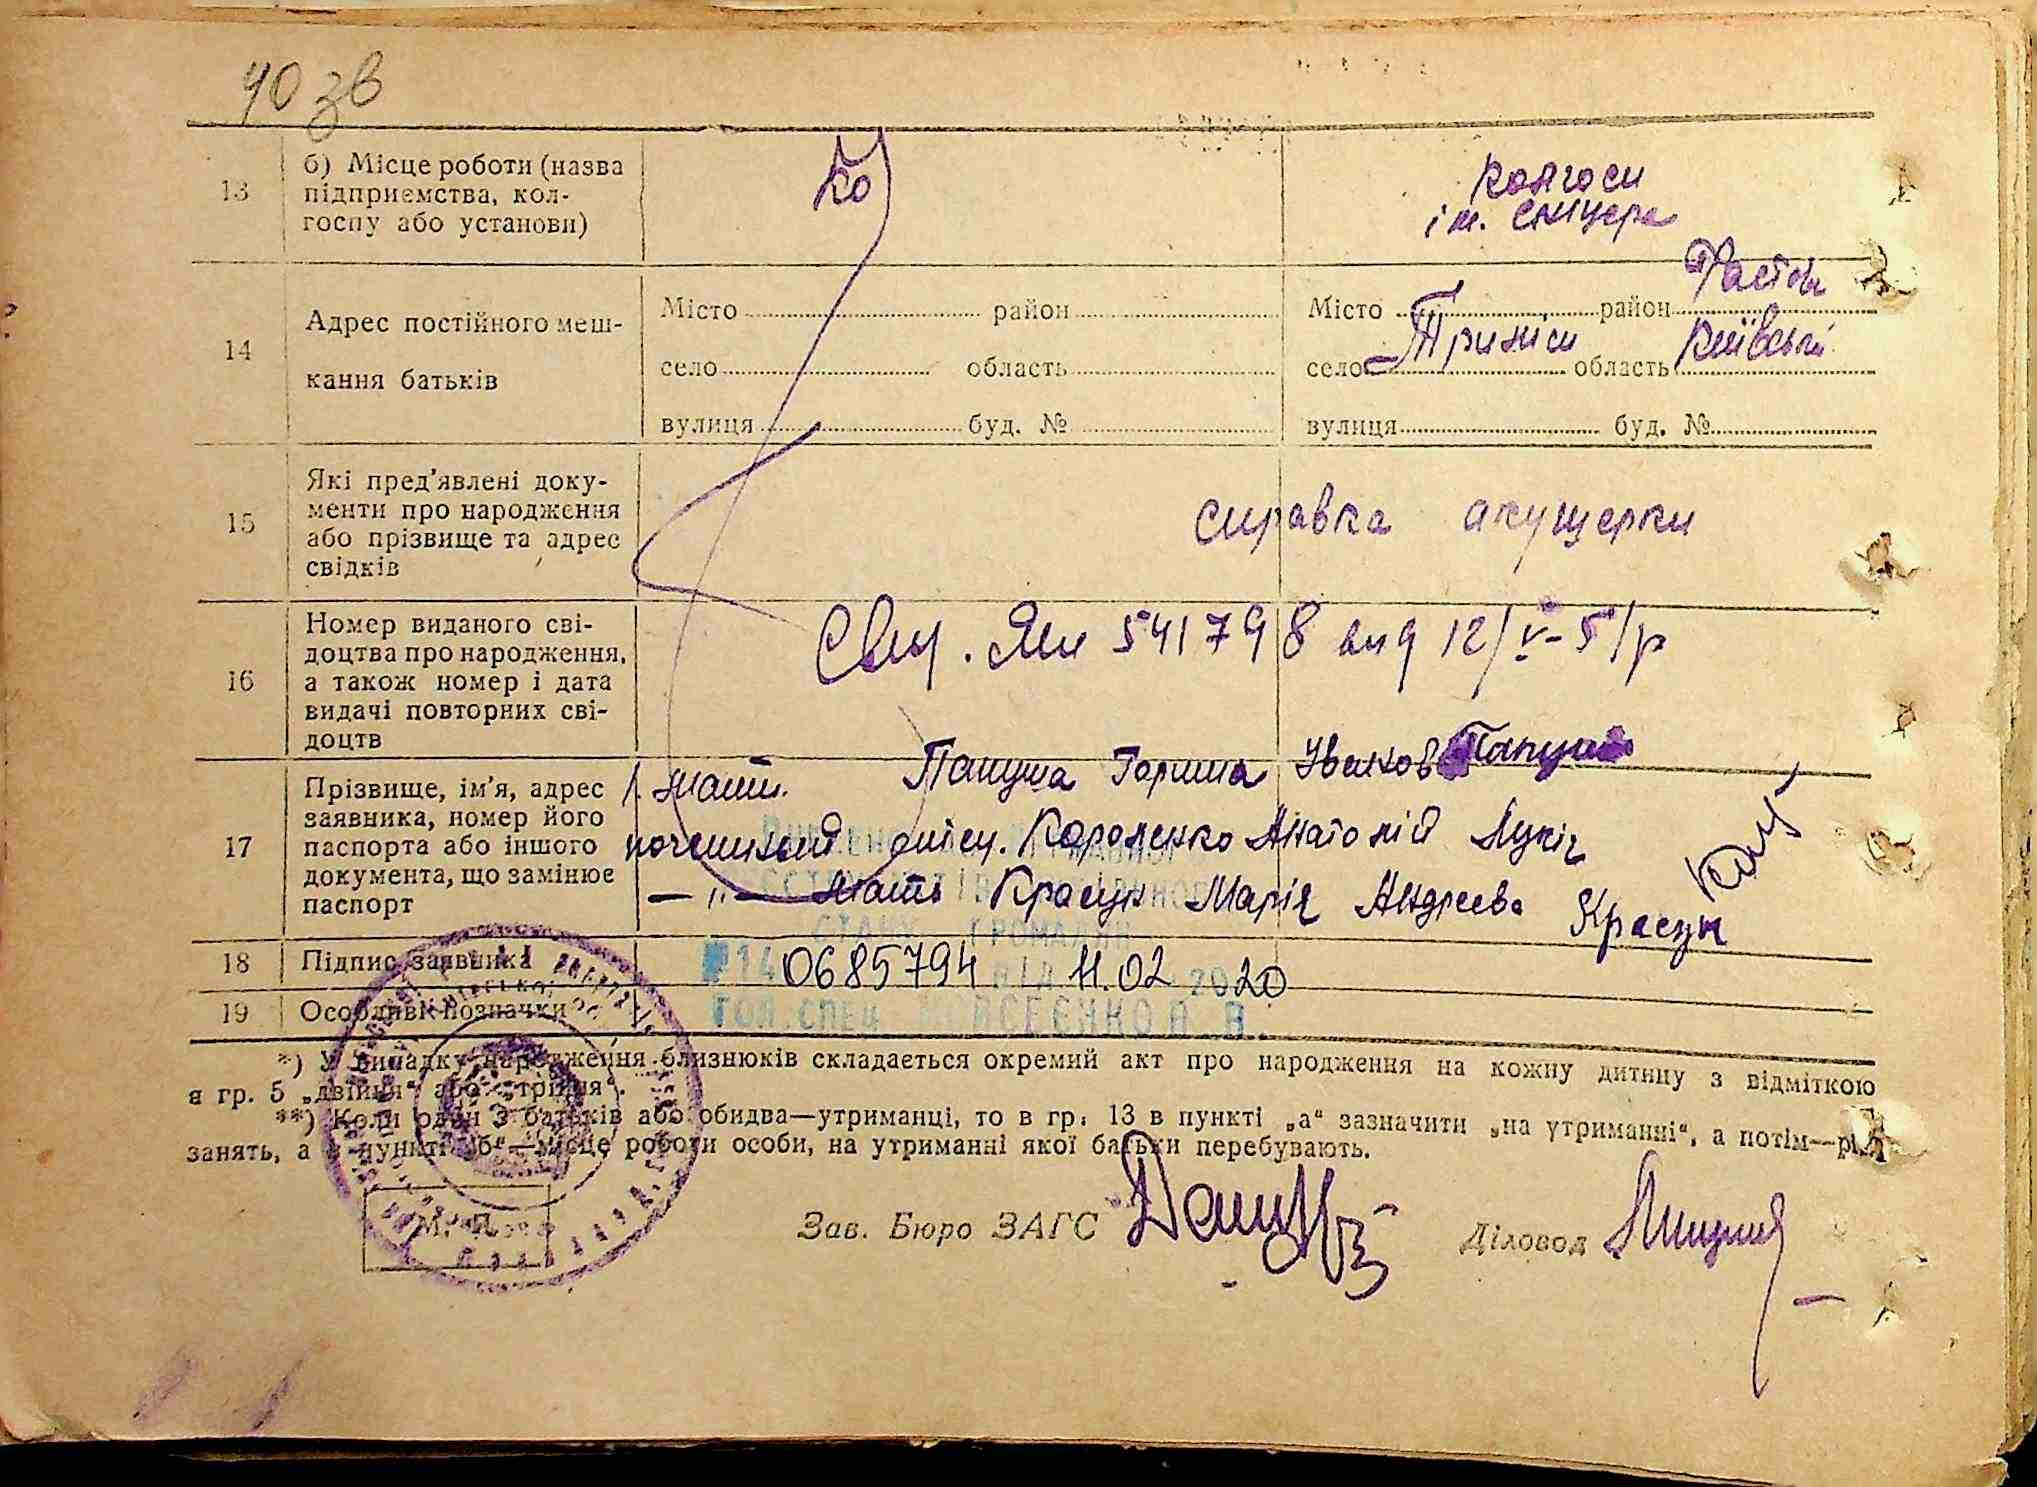 40 зв
13 б) Місце роботи (назва підприємства, колгоспу або установи)
Ко
колгосп
ім. Сніцера
14 Адрес постійного мешкання батьків
Місто район
село область
вулиця буд. №
Місто район Фастів
село Триліси область Київській
вулиця буд. №
15 Які пред'явлені документи про народження або прізвище та адрес свідків
справка акушерки
16 Номер виданого свідоцтва про народження, а також номер і дата видачі повторних свідоцтв
541798 вид 12/V-51р
17 Прізвище, ім'я, адрес заявника, номер його паспорта або іншого документа, що замінює паспорт
Папуша Горпина Іванов
Короленко Анатолій Лукіч
— " — мать Красун Марія Андреева Красун
СТАНУ ГРОМАДЯН
18 Підпис заявника
14 0685794 ВІД 11.02 2020
19 Особливі позначки
ГОЛ.СПЕЦ МОЙСЕЄНКО А.В.
*) У випадку народження близнюків складається окремий акт про народження на кожну дитину з відміткою
в гр. 5 „двійня“ або „трійня“.
**) Коли один з батьків або обидва—утриманці, то в гр. 13 в пункті „а“ зазначити „на утриманні“, а потім—рід
занять, а в пункті „б“—місце роботи особи, на утриманні якої батьки перебувають.
Зав. Бюро ЗАГС
Діловод
М. П.